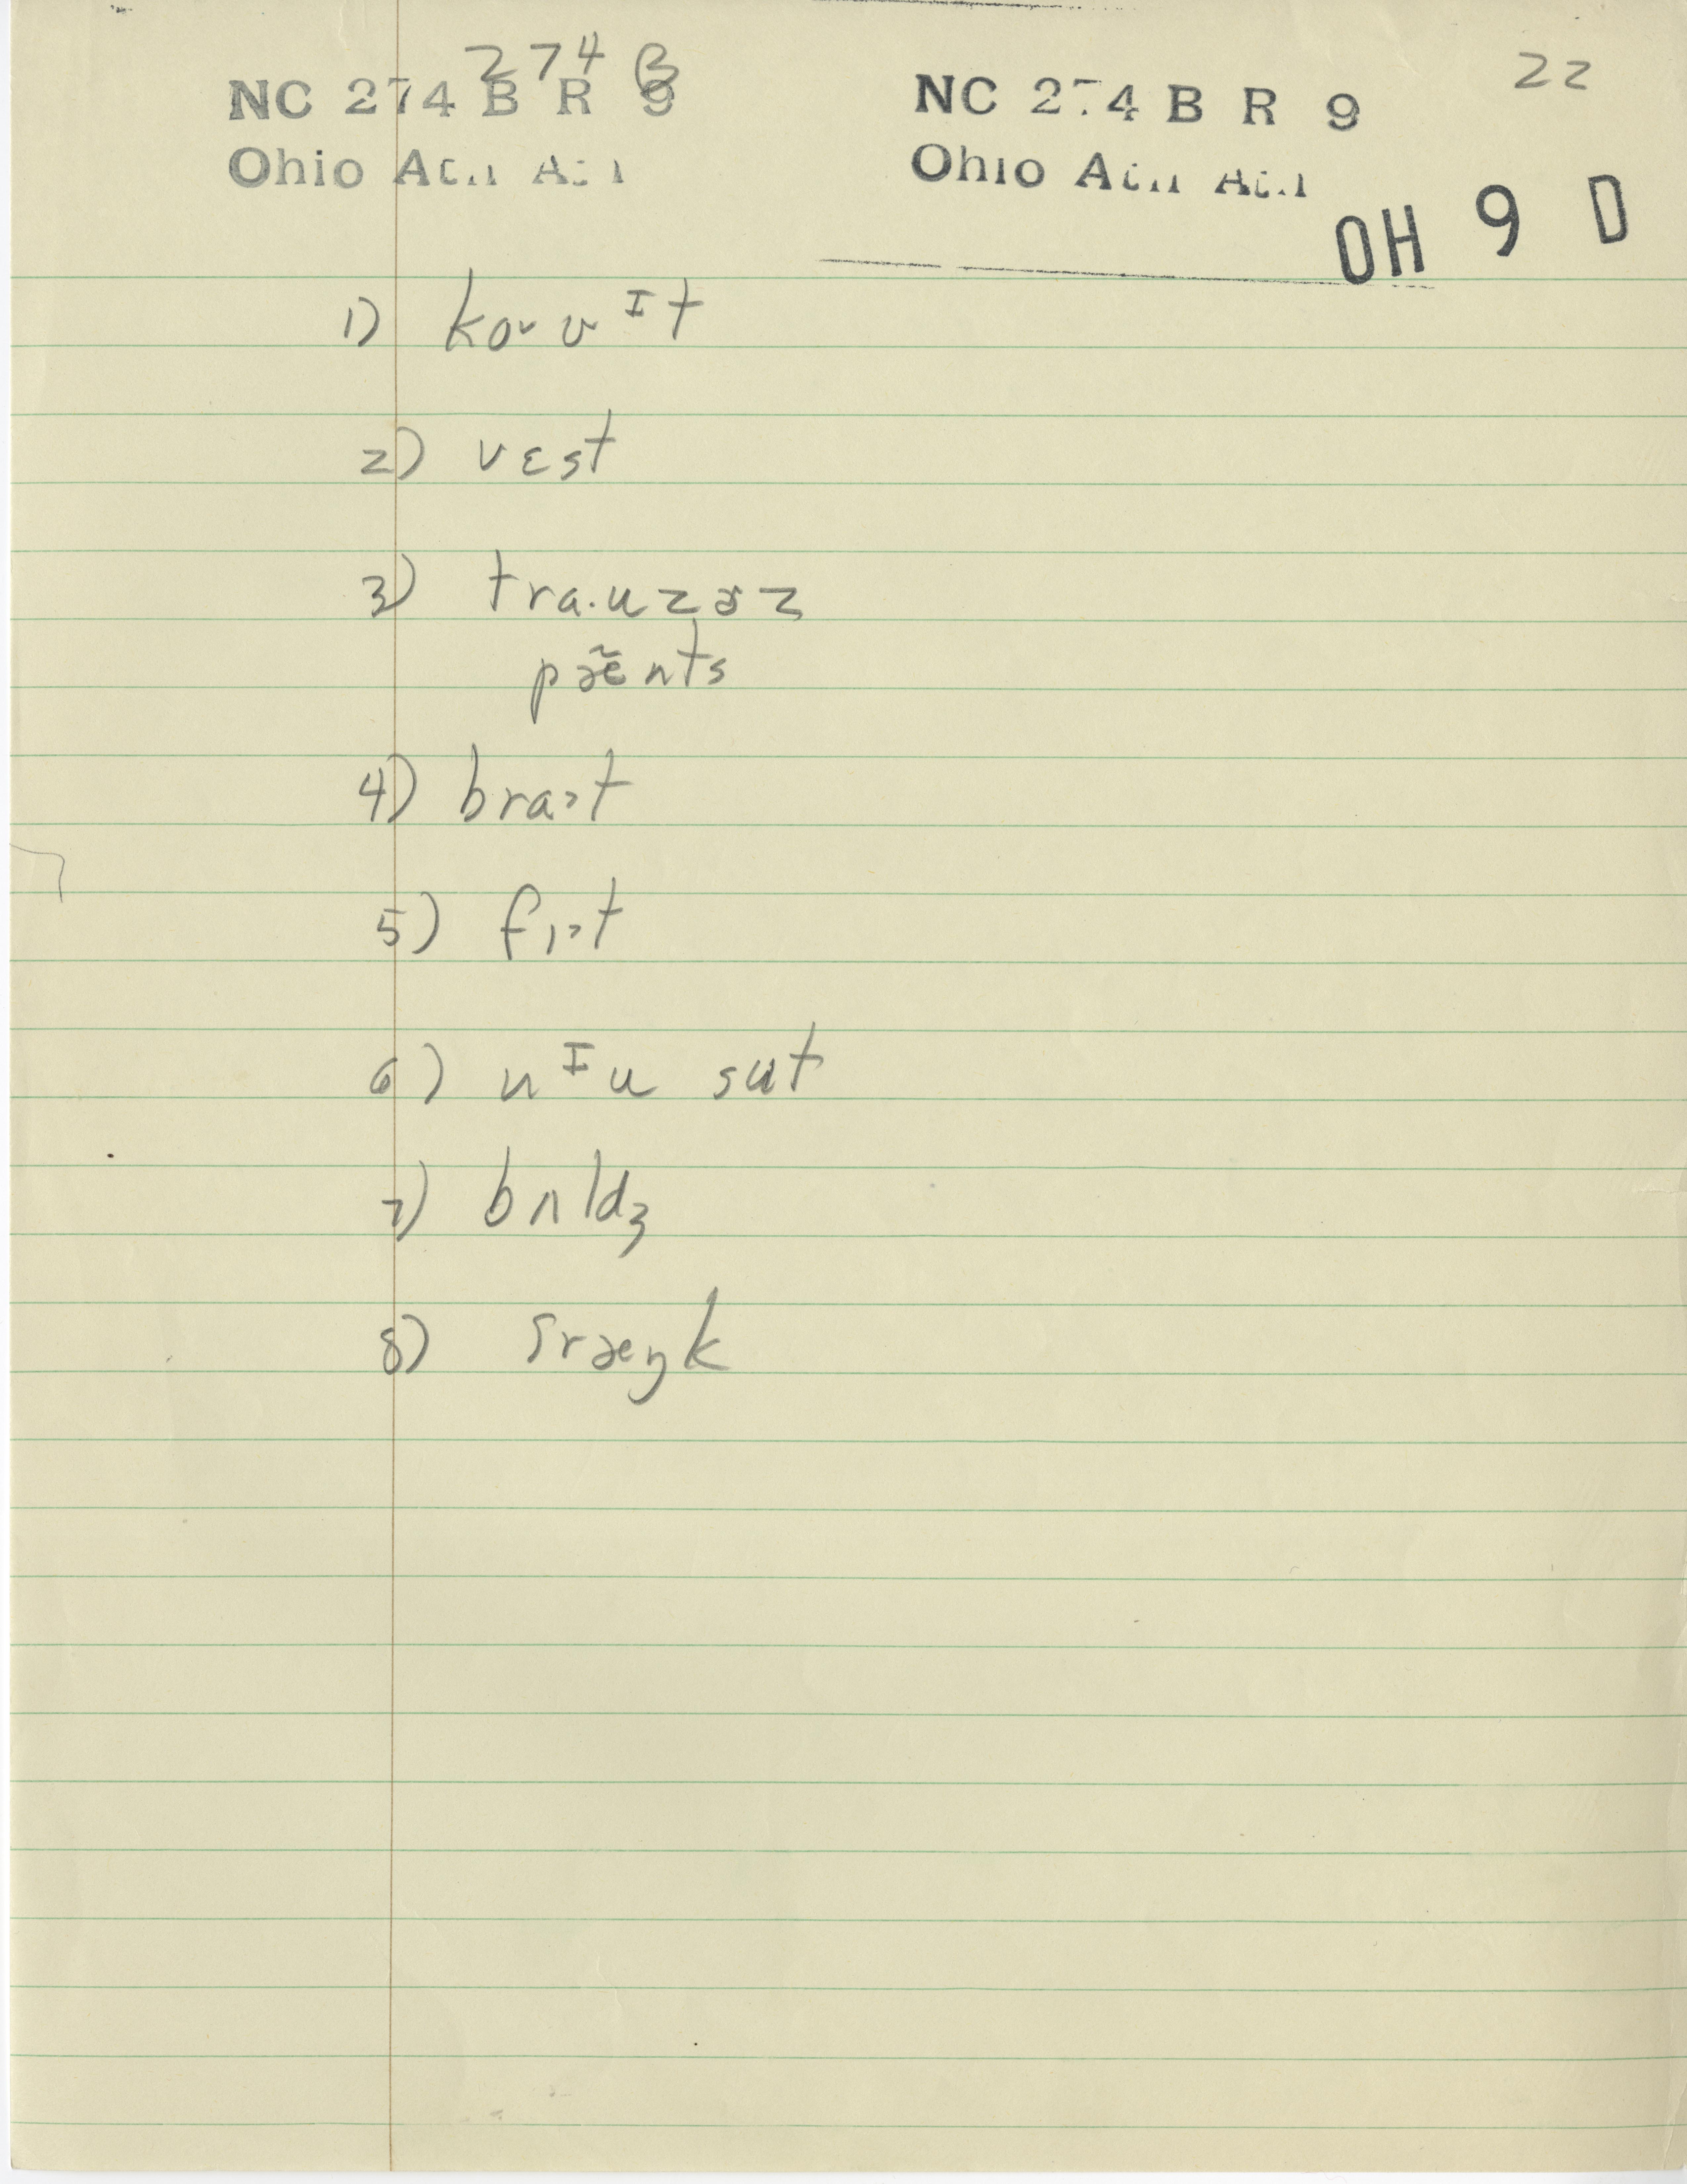 274 B
22
NC 274 B R 9
NC 274 B R 9
Ohio
Ohio
OH 9 D
1) koˇvᶦt
2) vɛst
3) tra.uzɚz
pæ̃nts
4) braˑt
5) fɪˑt
6) nᶦu sut
7) bʌldʒ
8) ʃræŋk